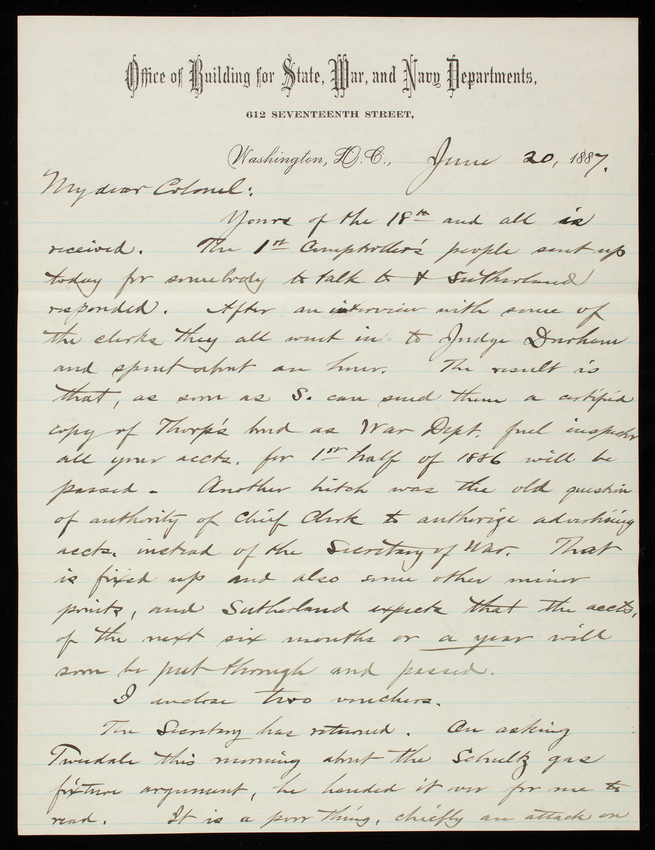 Office of Building for State, War, and Navy Departments,
612 SEVENTEENTH STREET,
Washington, D.C., June 20, 1887.
My dear Colonel:
Yours of the 18th and all is
received. The 1st Comptroller's people sent up
today for somebody to talk to & Sutherland
responded. After an interview with some of
the clerks they all went in to Judge Durham
and spent about an hour. The result is
that, as soon as S. can send them a certified
copy of Thorp's bond as War Dept. fuel inspector
all your accts. for 1st half of 1886 will be
passed - Another hitch was the old question
of authority of Chief Clerk to authorize advertising
accts. instead of the Secretary of War. That
is fixed up and also some other minor
points, and Sutherland expects that the accts.
of the next six months or a year will
soon be put through and passed.
I enclose two vouchers.
The Secretary has returned. On asking
Tweedale this morning about the Schultz gas
fixture argument, he handed it over for me to
read. It is a poor thing, chiefly an attack on